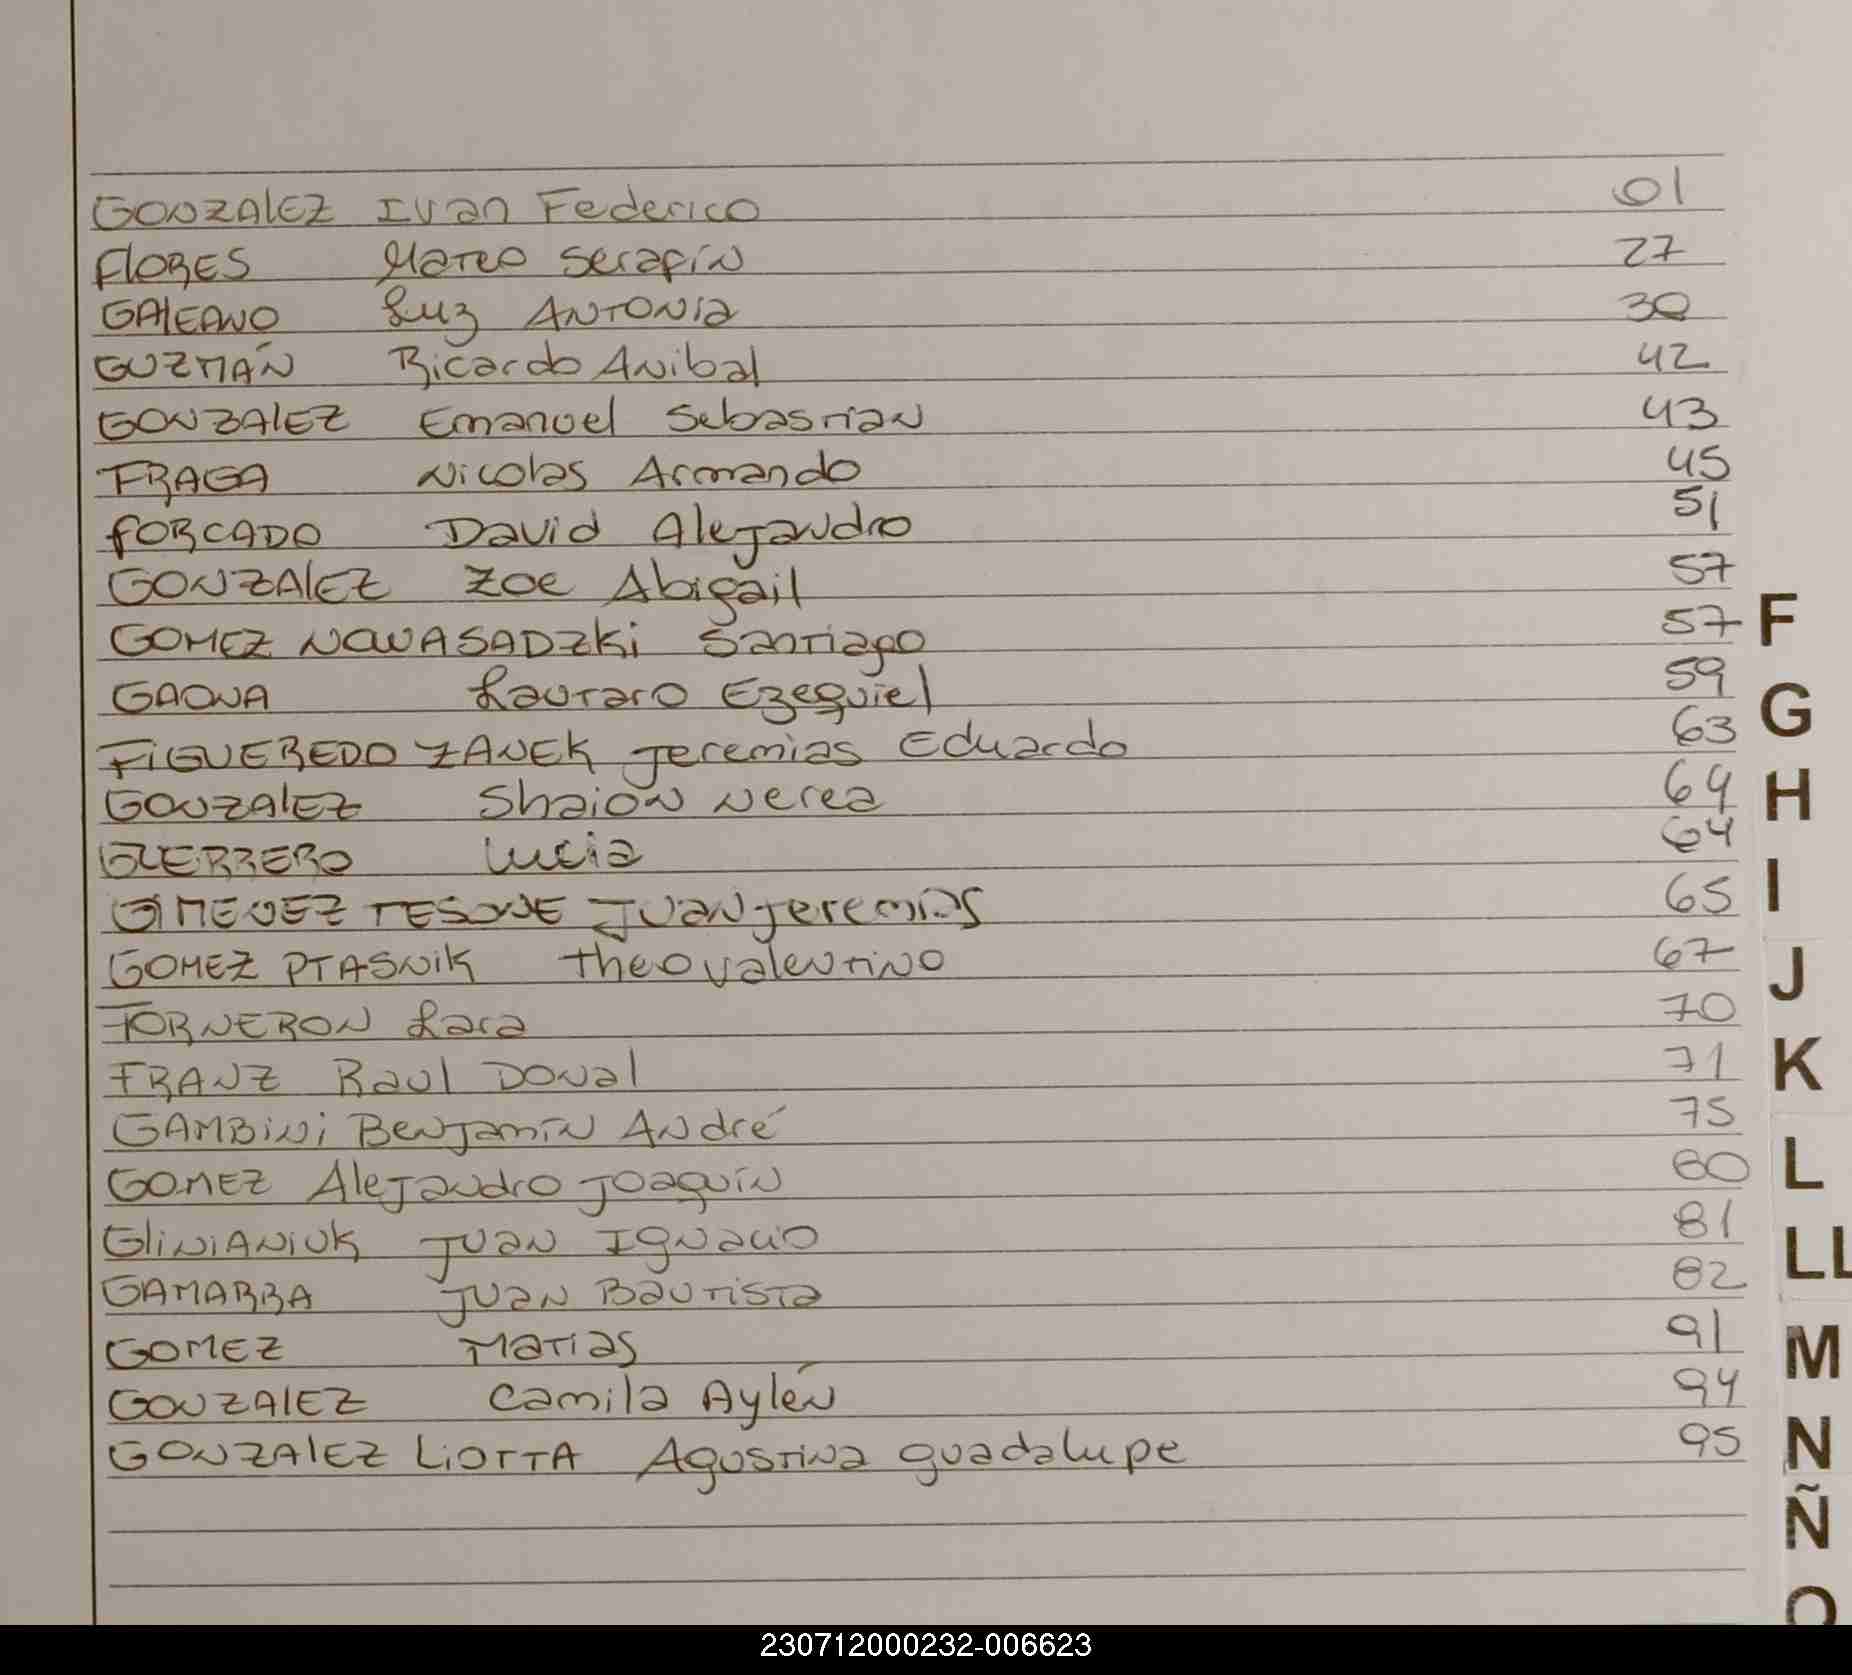 GONZALEZ Ivan Federico 01
FLORES Mateo Serafín 27
GALEANO Luz ANTONIA 30
GUZMÁN Ricardo Anibal 42
GONZALEZ Emanuel Sebastian 43
FRAGA Nicolas Armando 45
FORCADO David Alejandro 51
GONZALEZ Zoe Abigail 57
GOMEZ NOWASADZKi Santiago 57
GAONA Lautaro Ezequiel 59
FIGUEREDO ZANEK Jeremias Eduardo 63
GONZALEZ Shaion Nerea 64
GUERRERO Lucia 64
GIMENEZ TESONE Juan Jeremias 65
GOMEZ PTASNIK Theo Valentino 67
FORNERON Lara 70
FRANZ Raul Donal 71
GAMBINI Benjamín André 75
GOMEZ Alejandro Joaquín 80
GLINIANIUK Juan Ignacio 81
GAMARRA Juan Bautista 82
GOMEZ Matias 91
GONZALEZ Camila Aylén 94
GONZALEZ LIOTTA Agustina Guadalupe 95
F
G
H
I
J
K
L
LL
M
N
Ñ
O
230712000232-006623